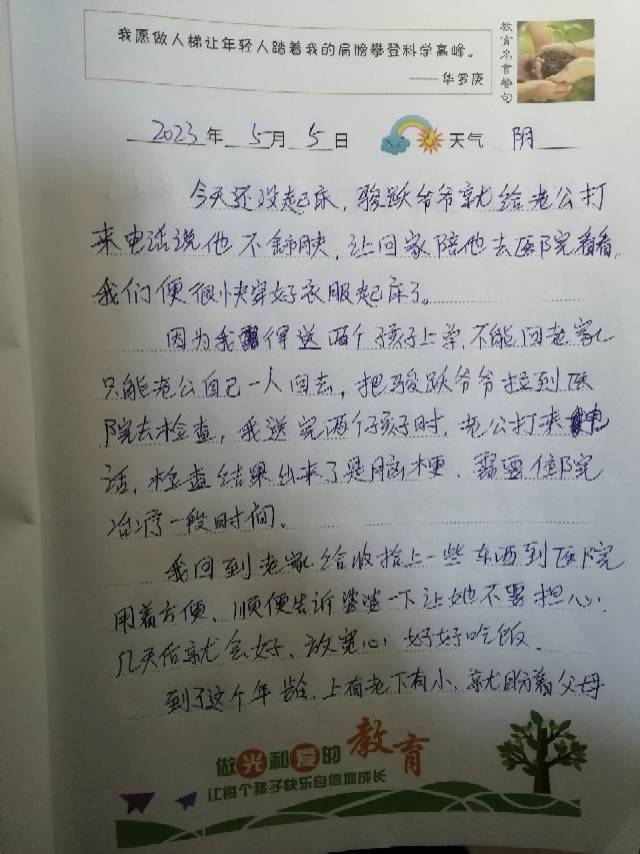 我愿做人梯让年轻人踏着我的肩膀攀登科学高峰。
——华罗庚
教育名言警句
2023年5月5日 天气 阴
今天还没起床,骏跃爷爷就给老公打
来电话说他不舒服,让回家陪他去医院看看,
我们便很快穿好衣服起床了。
因为我得送两个孩子上学,不能回老家,
只能老公自己一人回去,把骏跃爷爷拉到医
院去检查,我送完两个孩子时,老公打来电
话,检查结果出来了是脑梗,需要住院
治疗一段时间。
我回到老家给收拾上一些东西到医院
用着方便,顺便告诉婆婆一下让她不要担心,
几天后就会好,放宽心,好好吃饭。
到了这个年龄,上有老下有小,就盼着父母
做光和爱的教育
让每个孩子快乐自信地成长